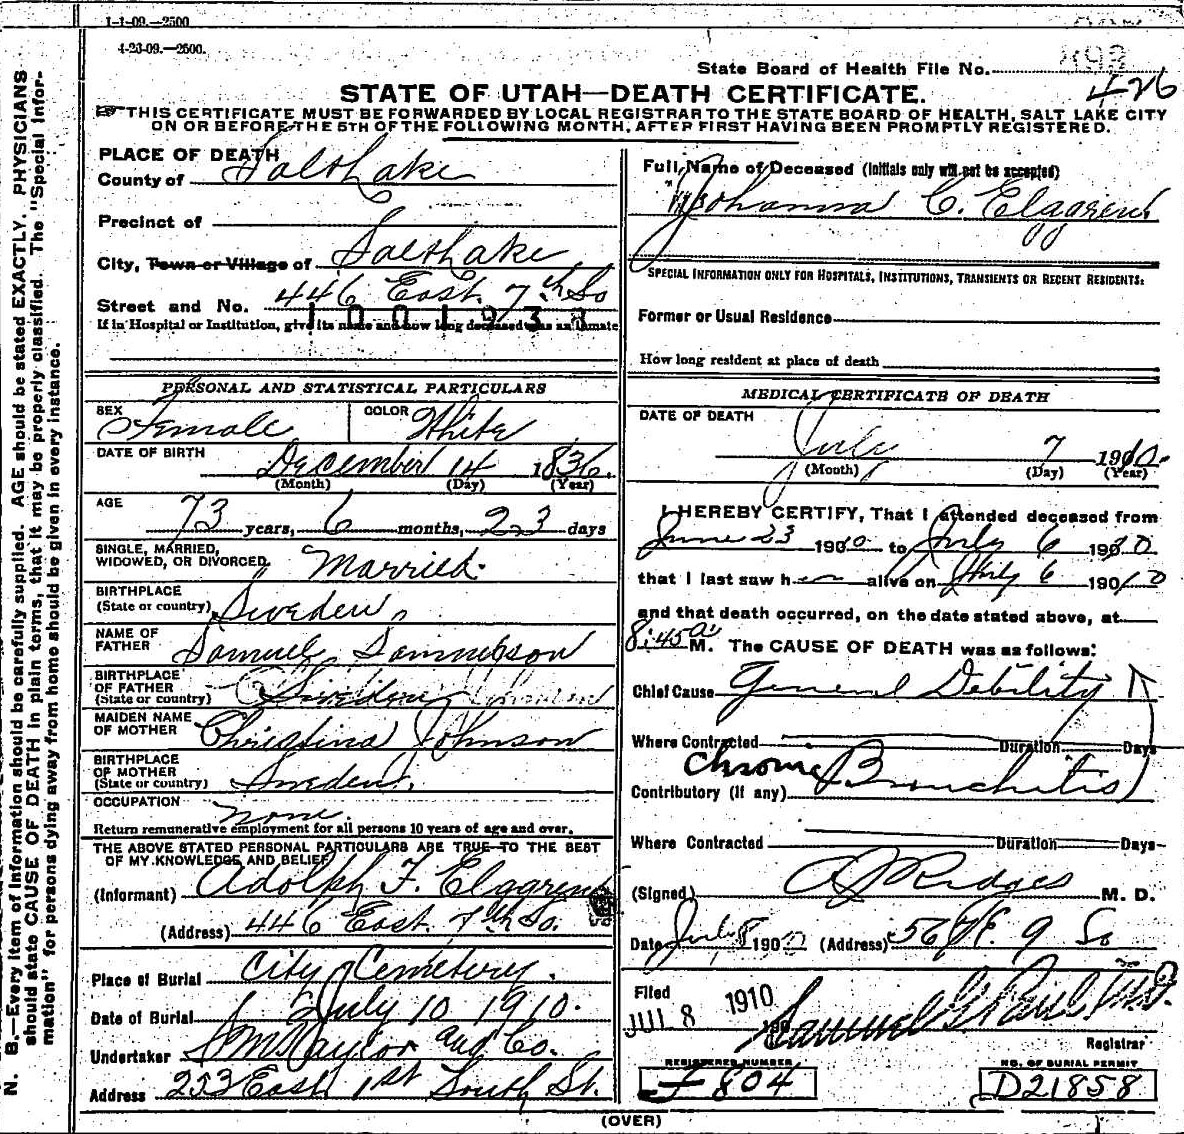 1-1-09.—2500
4-23-09.—2500.
State Board of Health File No.
426
STATE OF UTAH—DEATH CERTIFICATE.
THIS CERTIFICATE MUST BE FORWARDED BY LOCAL REGISTRAR TO THE STATE BOARD OF HEALTH, SALT LAKE CITY
ON OR BEFORE THE 5TH OF THE FOLLOWING MONTH, AFTER FIRST HAVING BEEN PROMPTLY REGISTERED.
N. B.—Every item of information should be carefully supplied. AGE should be stated EXACTLY. PHYSICIANS
should state CAUSE OF DEATH in plain terms, that it may be properly classified. The "Special Infor-
mation" for persons dying away from home should be given in every instance.
PLACE OF DEATH
County of Salt Lake
Precinct of
City, Town or Village of Salt Lake
Street and No. 446 East 7th So
1001938
If in Hospital or Institution, give its name and how long deceased was an inmate
PERSONAL AND STATISTICAL PARTICULARS
SEX Female COLOR White
DATE OF BIRTH December 14 1836.
(Month) (Day) (Year)
AGE 73 years, 6 months, 23 days
SINGLE, MARRIED,
WIDOWED, OR DIVORCED, Married.
BIRTHPLACE
(State or country) Sweden
NAME OF
FATHER Samuel
BIRTHPLACE
OF FATHER
(State or country) Sweden
MAIDEN NAME
OF MOTHER Christina Johnson
BIRTHPLACE
OF MOTHER
(State or country) Sweden.
OCCUPATION none.
Return remunerative employment for all persons 10 years of age and over.
THE ABOVE STATED PERSONAL PARTICULARS ARE TRUE TO THE BEST
OF MY KNOWLEDGE AND BELIEF
(Informant) Adolph F. Elggren
(Address) 446 East 7th So.
Place of Burial City Cemetery.
Date of Burial July 10 1910.
Undertaker S M Taylor and Co.
Address 223 East 1st South St.
Full Name of Deceased (Initials only will not be accepted)
Johanna C. Elggren
SPECIAL INFORMATION ONLY FOR HOSPITALS, INSTITUTIONS, TRANSIENTS OR RECENT RESIDENTS:
Former or Usual Residence
How long resident at place of death
MEDICAL CERTIFICATE OF DEATH
DATE OF DEATH
July 7 1910.
(Month) (Day) (Year)
I HEREBY CERTIFY, That I attended deceased from
June 23 1910 to July 6 1910.
that I last saw her alive on July 6 1910
and that death occurred, on the date stated above, at
8:45 a M. The CAUSE OF DEATH was as follows:
Chief Cause General Debility
Where Contracted Duration Days
Contributory (if any) Chronic Bronchitis
Where Contracted Duration Days
(Signed) Ridges M. D.
Date July 8 1910 (Address) 567 E. 9 So
Filed
JUL 8 1910 190
Samuel G Paul M.D.
Registrar
REGISTERED NUMBER
F 804
NO. OF BURIAL PERMIT
D21858
(OVER)